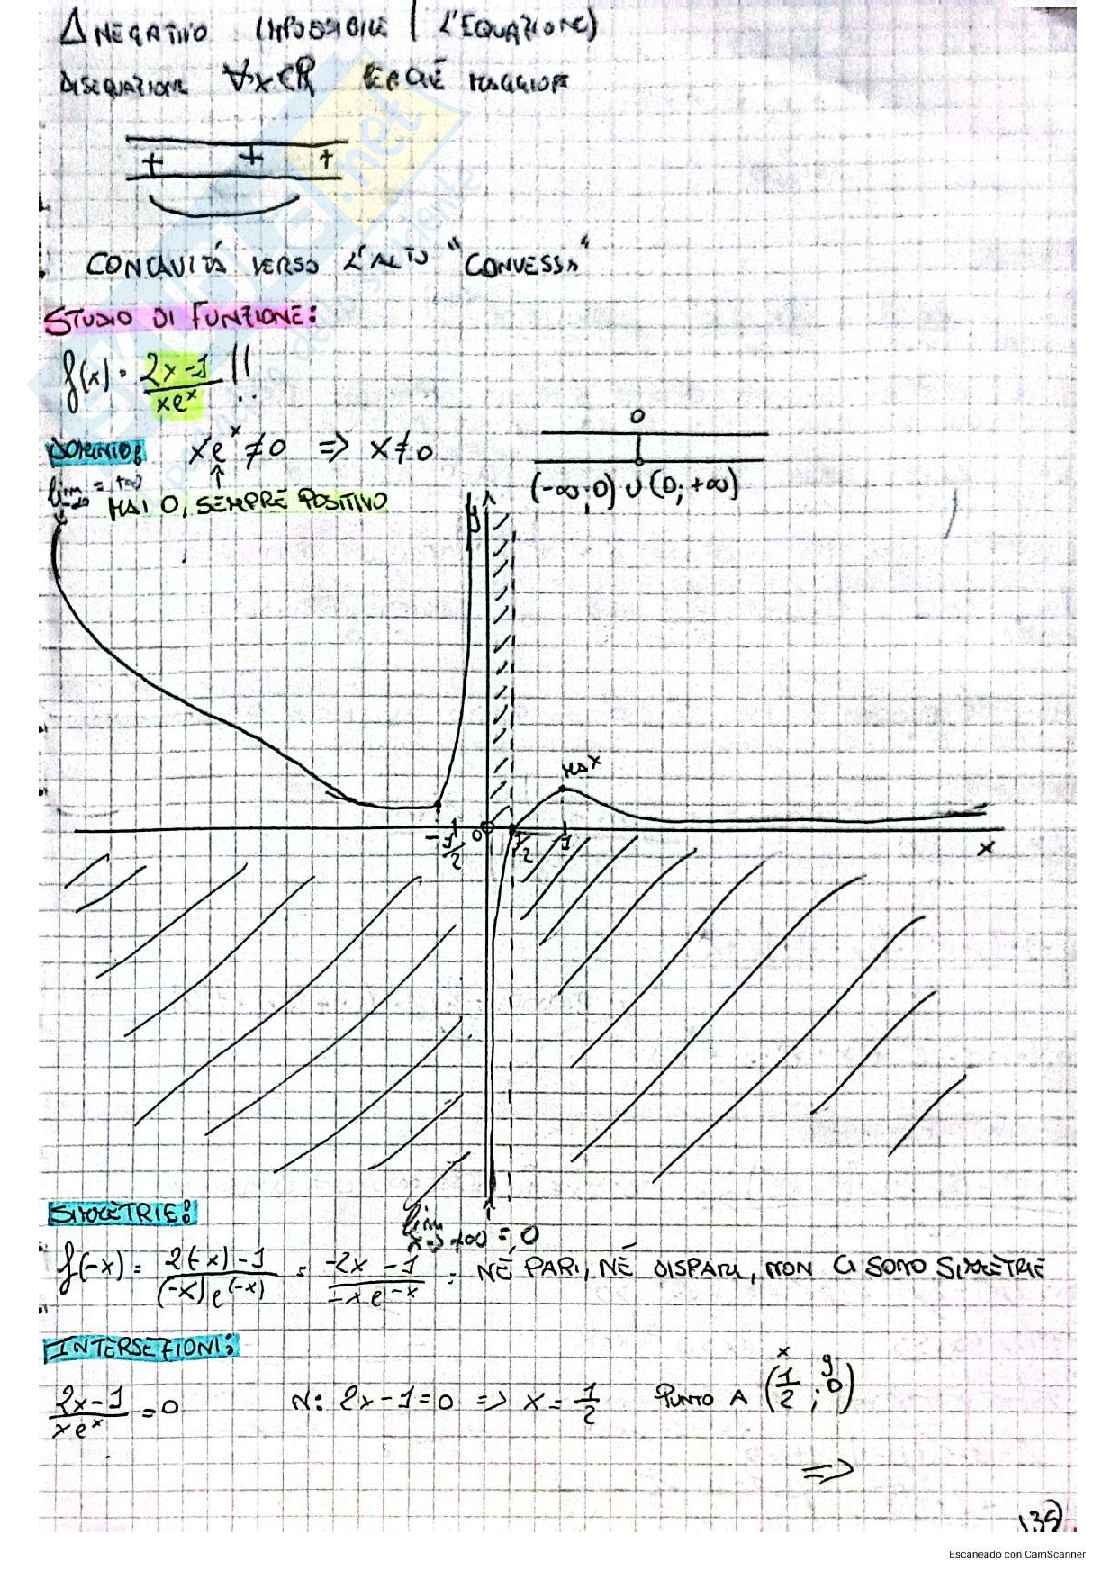 Δ NEGATIVO IMPOSSIBILE (L'EQUAZIONE)
DISEQUAZIONE ∀x∈R PERCHÈ MAGGIORE
+ + +
CONCAVITÀ VERSO L'ALTO "CONVESSA"
STUDIO DI FUNZIONE:
f(x) = (2x-1)/(xe^x) !!
DOMINIO: xe^x ≠ 0 => x ≠ 0
0
(-∞;0) ∪ (0;+∞)
MAI 0, SEMPRE POSITIVO
lim x→-∞ = +∞
y
MAX
-1/2 0 1/2 1 x
lim x→+∞ = 0
SIMMETRIE:
f(-x) = (2(-x)-1)/((-x)e^(-x)) = (-2x-1)/(-xe^-x) = NÈ PARI, NÈ DISPARI, NON CI SONO SIMMETRIE
INTERSEZIONI:
(2x-1)/(xe^x) = 0 N: 2x-1=0 => x = 1/2 PUNTO A (1/2 ; 0)
x y
=>
135
Escaneado con CamScanner